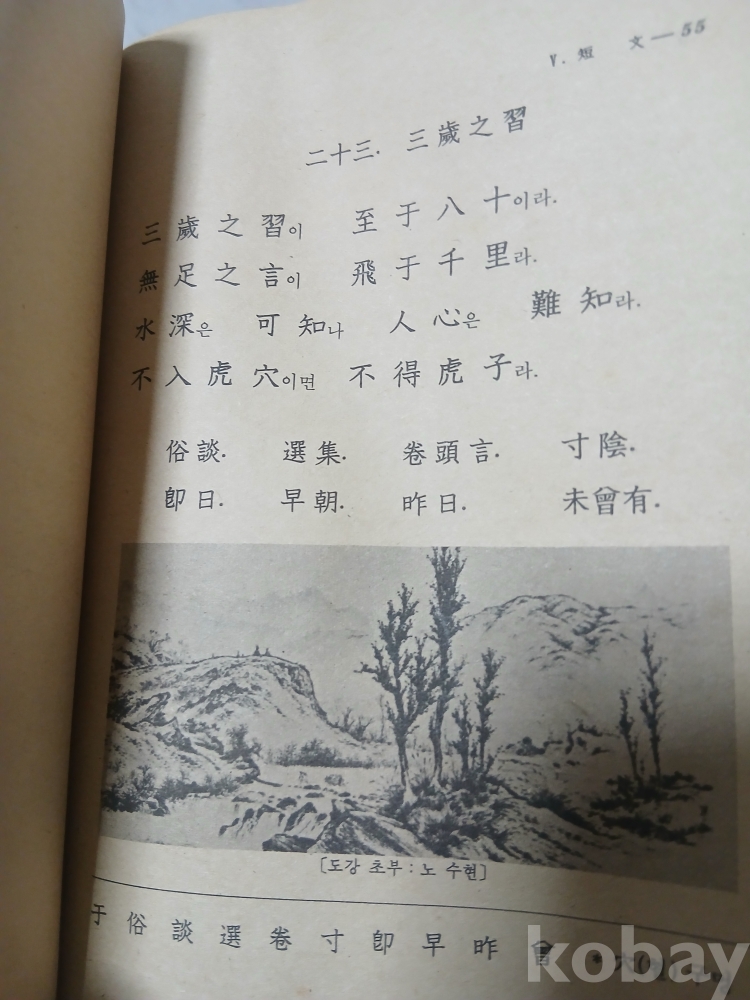 V. 短 文—55
二十三. 三歲之習
三歲之習이 至于八十이라.
無足之言이 飛于千里라.
水深은 可知나 人心은 難知라.
不入虎穴이면 不得虎子라.
俗談. 選集. 卷頭言. 寸陰.
卽日. 早朝. 昨日. 未曾有.
[도강 초부 : 노 수현]
于 俗 談 選 卷 寸 卽 早 昨 曾
kobay